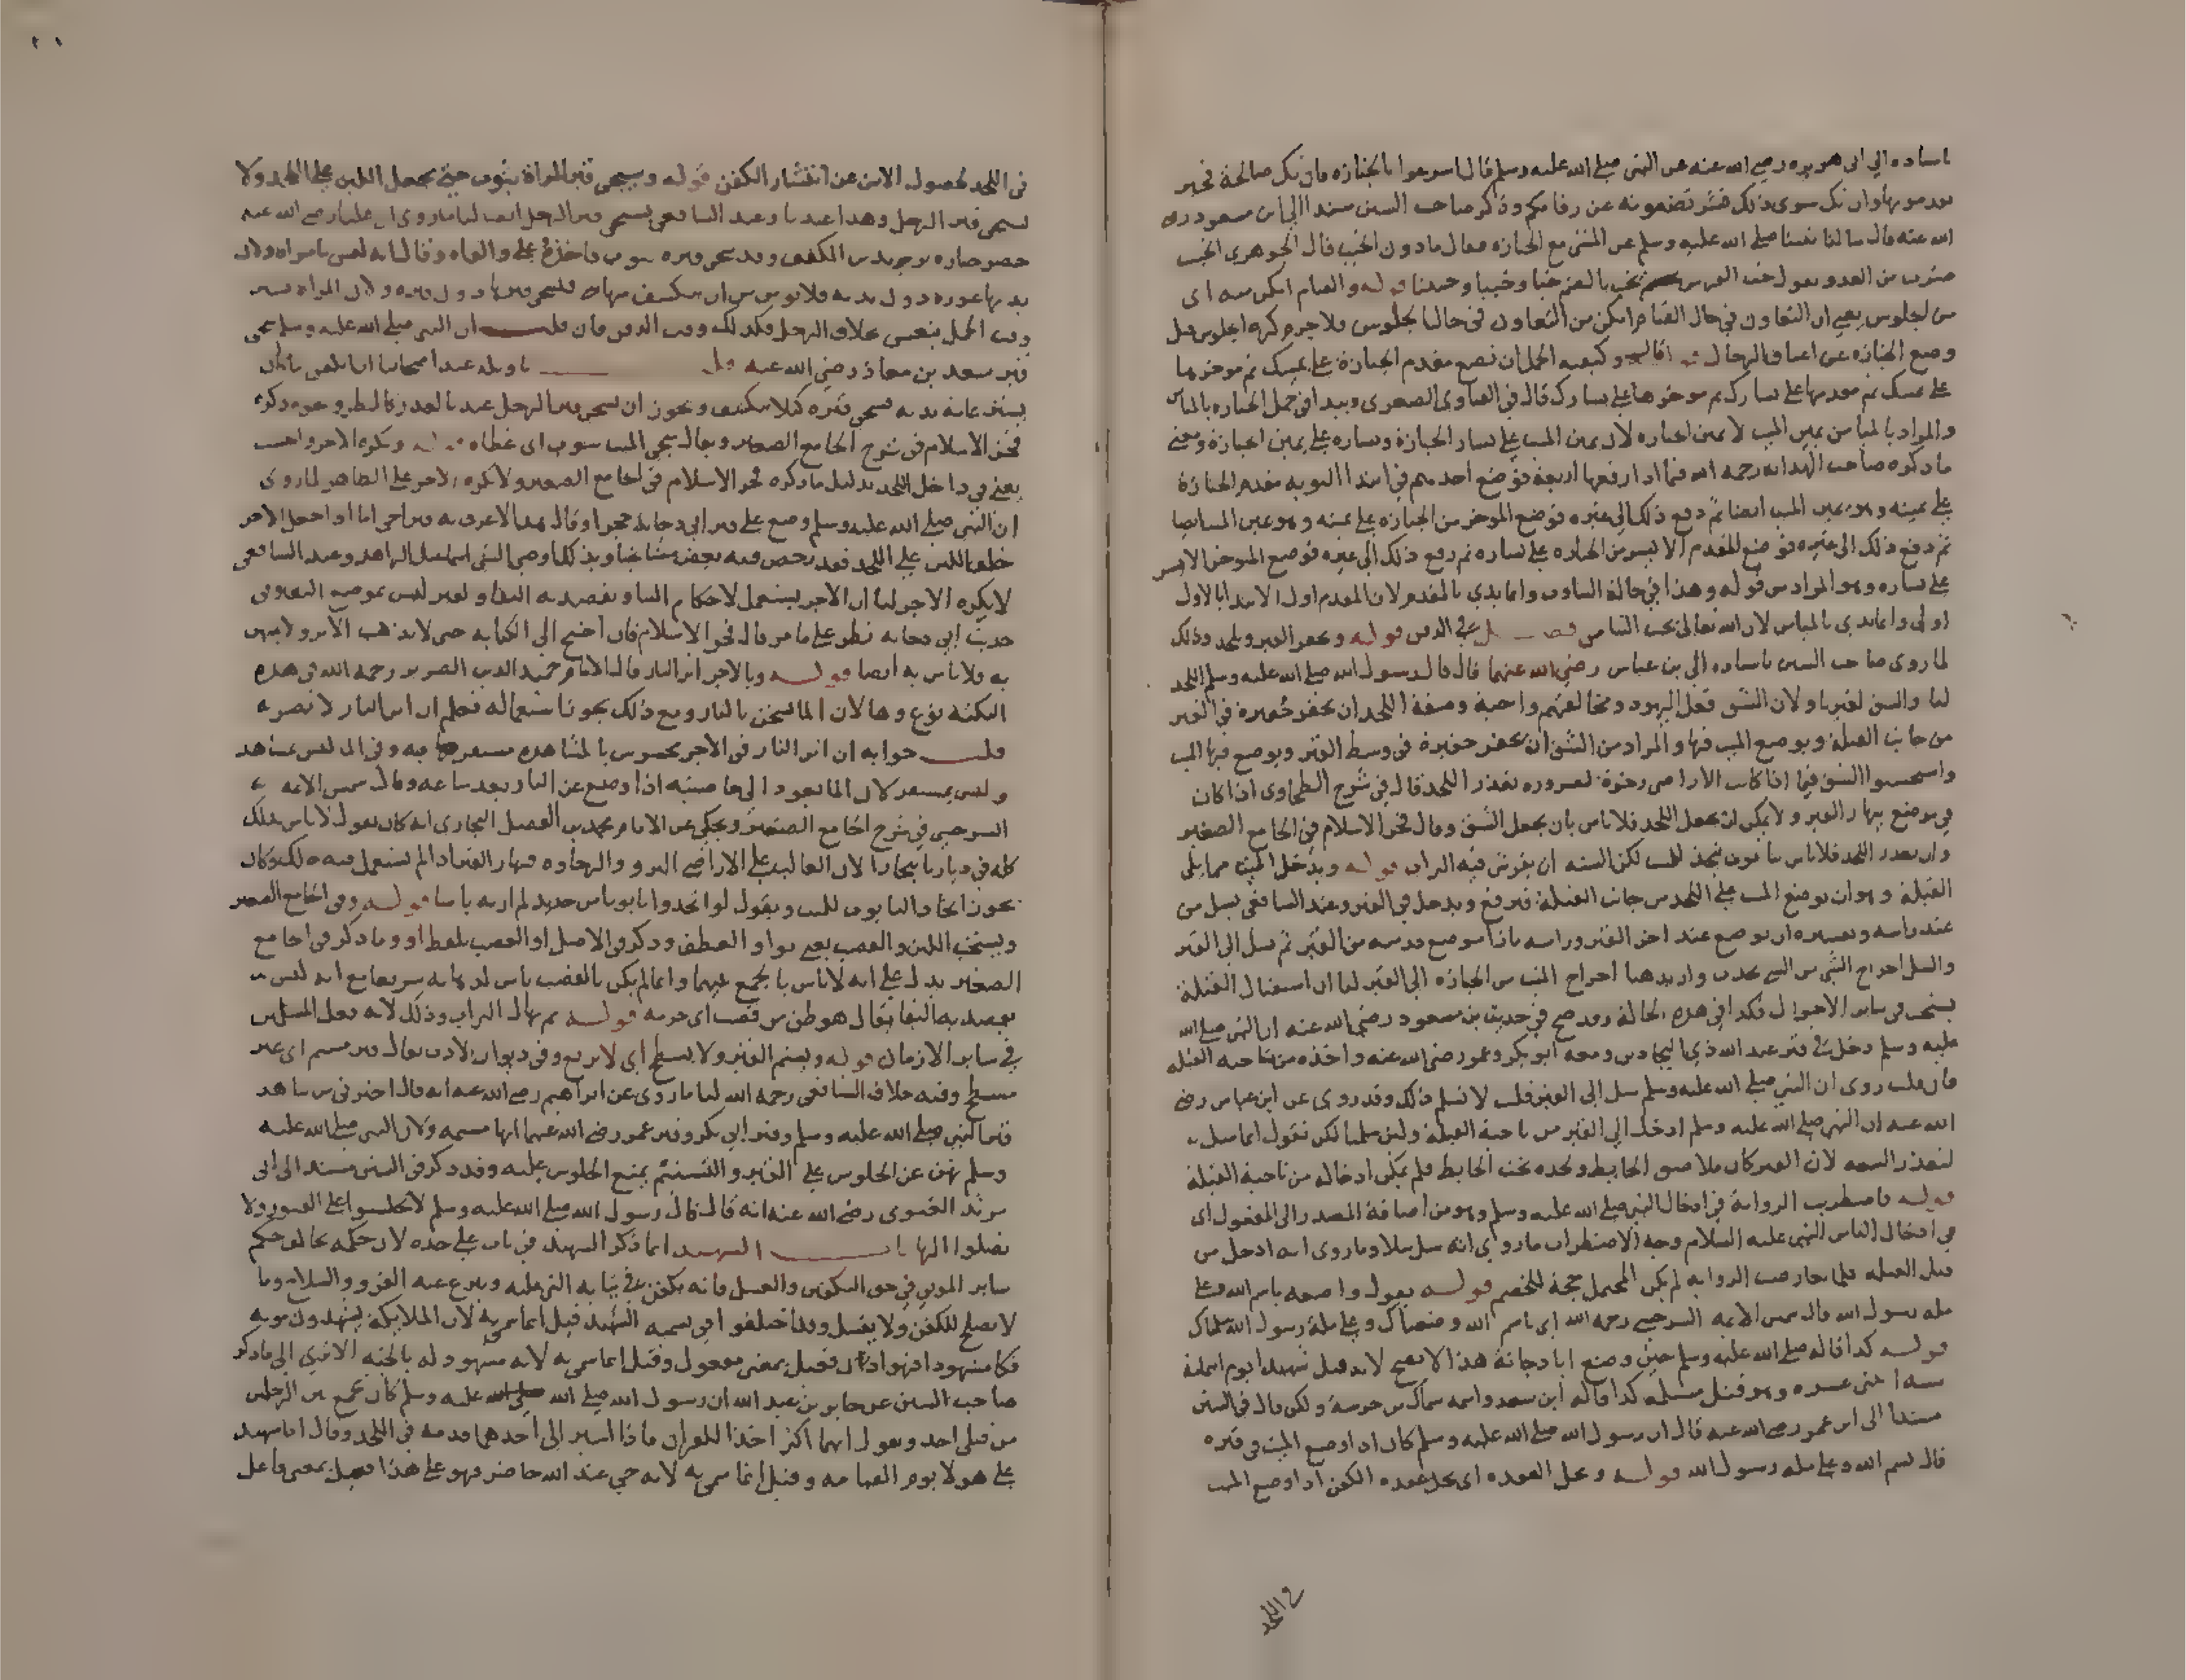 باسناده الى ابى هريره رضي الله عنه عن النبي صلى الله عليه وسلم قال اسرعوا بالجنازه فان تك صالحة فخير
تقدمونها وان تك سوى ذلك فشر تضعونه عن رقابكم وذكر صاحب السنن مسندا الى ابن مسعود رضى
الله عنه قال سالنا نبينا صلى الله عليه وسلم عن المشى مع الجنازه فقال ما دون الخبب قال الجوهرى الخبب
ضرب من العدو تقول خب الفرس يخب بالضم خبا وخببا وخبيبا قوله والقيام امكن منه اى
من الجلوس يعني ان التعاون في حال القيام امكن من التعاون في حال الجلوس فلا جرم كره الجلوس قبل
وضع الجنازه عن اعناق الرجال قوله وكيفيه الحمل ان تضع مقدم الجنازة على يمينك ثم موخرها
على يمينك ثم مقدمها على يسارك ثم موخرها على يسارك قال في الفتاوى الصغرى ويبدا في حمل الجنازه بالميامن
والمراد بالميامن يمين الميت لا يمين الجنازه لان يمين الميت على يسار الجنازة ويساره على يمين الجنازة ومعنى
ما ذكره صاحب الهدايه رحمه الله فيما اذا رفعها اربعة فوضع احد منهم في ابتدا النوبه مقدم الجنازة
على يمينه وهو يمين الميت ايضا ثم دفع ذلك الى غيره فوضع الموخر من الجنازه على يمينه وهو يمين الميت ايضا
ثم دفع ذلك الى غيره فوضع المقدم الايسر من الجنازه على يساره ثم رفع ذلك الى غيره فوضع الموخر الايسر
على يساره وهو المراد من قوله وهذا في حالة التناوب وانما يبدي بالمقدم لان المقدم اول الابتدا بالاول
اولى وانما يبدى بالميامن لان الله تعالى يحب التيامن فصــل في الدفن قوله ويحفر القبر ويلحد وذلك
لما روى صاحب السنن باسناده الى بن عباس رضي الله عنهما قال قال رسول الله صلى الله عليه وسلم اللحد
لنا والشق لغيرنا ولان الشق فعل اليهود ومخالفتهم واجبة وصفة اللحد ان يحفر حفيرة في القبر
من جانب القبلة ويوضع الميت فيها والمراد من الشق ان يحفر حفيرة في وسط القبر ويوضع فيها الميت
واستحسنوا الشق فيما اذا كانت الاراضى رخوة لضروره تعذر اللحد قال في شرح الطحاوى اذا كان
في موضع ينهار القبر ولا يمكن ان يجعل اللحد فلا باس بان يجعل الشق وقال فخر الاسلام في الجامع الصغير
وان تعذر اللحد فلا باس بتابوت يتخذ للميت لكن السنه ان يفرش فيه التراب قوله ويدخل الميت مما يلى
القبلة وهو ان يوضع الميت على اللحد من جانب القبلة فيرفع ويدخل في القبر وعند الشافعي يسل من
عند راسه وتفسيره ان يوضع عند اخر القبر وراسه بازا موضع قدميه من القبر ثم يسل الى القبر
والسل اخراج الشي من الشي بجذب واريد هنا اخراج الميت من الجنازه الى القبر لنا ان استقبال القبلة
يستحب في ساير الاحوال فكذا في هذه الحالة وقد صح في حديث بن مسعود رضي الله عنه ان النبي صلى الله
عليه وسلم دخل في قبر عبد الله ذي البجادين ومعه ابو بكر وعمر رضي الله عنه واخذه من ناحيه القبله
فان قلت روى ان النبي صلى الله عليه وسلم سل الى القبر قلت لا نسلم ذلك وقد روى عن ابن عباس رضي
الله عنه ان النبي صلى الله عليه وسلم ادخل الى القبر من ناحية القبلة ولئن سلمنا لكن نقول انما سل
لتعذر السعه لان القبر كان ملاصق الحايط ولحده تحت الحايط فلم يمكن ادخاله من ناحية القبلة
قوله فاضطرب الرواية في ادخال النبي صلى الله عليه وسلم وهو من اضافة المصدر الى المفعول اى
في ادخال الناس النبي عليه السلام وجه الاضطراب ما روى انه سل سلا وما روى انه ادخل من
قبل القبله فلما تعارضت الروايه لم يكن المحتمل حجة للخصم قولــه يقول واضعه باسم الله وعلى
مله رسول الله قال شمس الايمه السرخسى رحمه الله اى باسم الله وضعناك وعلى ملة رسول الله سلمناك
قولــه كذا قاله صلى الله عليه وسلم حين وضع ابا دجانة هذا لا يصح لانه قتل شهيدا يوم اليمامة
سنه اثنى عشره وهو قتل مسيلمه كذا قاله ابن سعد واسمه سماك بن خرشة ولكن قال في السنن
مسندا الى ابن عمر رضى الله عنه قال ان رسول الله صلى الله عليه وسلم كان اذا وضع الميت في قبره
قال بسم الله وعلى مله رسول الله قولــه وتحل العقده اى تحل عقده الكفن اذا وضع الميت
في اللحد
في اللحد لحصول الامن عن انتشار الكفن قوله ويسجى قبر المراة بثوب حتى يجعل اللبن على اللحد ولا
يسجى قبر الرجل وهذا عندنا وعند الشافعى يسجى قبر الرجل ايضا لنا ما روى ان عليا رضي الله عنه
حضر جنازه يزيد بن المكفف وقد سجى قبره بثوب فاخذه على والقاه وقال انه ليس بامراه ولان
بدنها عوره دون بدنه فلا يومن من ان ينكشف منها فسجى قبرها دون قبره ولان المراه تستر
وقت الحمل بنعش بخلاف الرجل فكذلك وقت الدفن فان قلت ان النبي صلى الله عليه وسلم سجى
قبر سعد بن معاذ رضي الله عنه قلت تاويله عند اصحابنا ان الكفن ما كان
يستر عامة بدنه فسجى قبره كيلا ينكشف ويجوز ان يسجى قبر الرجل عند العذر كالمطر ونحوه ذكره
فخر الاسلام في شرح الجامع الصغير ويقال سجى الميت بثوب اى غطاه قوله ويكره الاجر والخشب
يعني في داخل اللحد بدليل ما ذكره فخر الاسلام في الجامع الصغير ولا يكره الاجر على الظاهر لما روى
ان النبي صلى الله عليه وسلم وضع على قبر ابي دجانة حجرا وقال هذا لاعرف به قبر اخى اما اذا جعل الاجر
خلف اللبن على اللحد فقد رخص فيه بعض مشايخنا وبذلك اوصى الشيخ اسماعيل الزاهد وعند الشافعى
لا يكره الاجر لنا ان الاجر يستعمل لاحكام البنا ويقصد به البقا والقبر ليس بموضع البقا وفى
حديث ابي دجانه نظر على ما مر قال فخر الاسلام فان احتيج الى الكتابه حتى لا يذهب الاثر ولا يمتهن
به فلا باس به ايضا قولــه وبالاجر اثر النار قال الامام حميد الدين الضرير رحمه الله في هذه
النكته نوع وها لان الما يسخن بالنار ومع ذلك يجوز استعماله فعلم ان اثر النار لا يضر
قلت جوابه ان اثر النار في الاجر محسوس بالمشاهده فيه وفي الما ليس بمشاهد
وليس بمستقر لان الما يعود الى خاصيته اذا وضع عن النار بعد ساعه وقال شمس الايمه
السرخسي في شرح الجامع الصغير ويحكى عن الامام محمد بن الفضل البخارى انه كان يقول لا باس بذلك
كله في ديارنا ببخارا لان الغالب على الاراضي النزو والرخاوه فينهار القبر اذا لم يستعمل فيه ذلك وكان
يجوز اتخاذ التابوت للميت ويقول لو اتخذوا تابوتا من حديد لم ار به باسا قولــه وفى الجامع الصغير
ويستحب اللبن والقصب يعنى بواو العطف وذكر في الاصل او القصب بلفظ او وما ذكر في الجامع
الصغير يدل على انه لا باس بالجمع بينهما وانما لم يكن بالقصب باس لذهابه سريعا مع انه ليس
يقصد به البقا يقال هو طن من قصب اى حزمه قولــه ثم يهال التراب وذلك لانه فعل المسلمين
في ساير الازمان قوله ويسنم القبر ولا يسطح اى لا يربع وفى ديوان الادب يقال قبر مسنم اى غير
مسطح وفيه خلاف الشافعى رحمه الله لنا ما روى عن ابراهيم رضي الله عنه انه قال اخبرنى من شاهد
قبر النبي صلى الله عليه وسلم وقبر ابى بكر وقبر عمر رضي الله عنهما انها مسنمه ولان النبي صلى الله عليه
وسلم نهى عن الجلوس على القبر والتسنيم يمنع الجلوس عليه وقد ذكر في السنن مسندا الى ابى
مرثد الغنوى رضي الله عنه انه قال قال رسول الله صلى الله عليه وسلم لا تجلسوا على القبور ولا
تصلوا اليها بــاب الشهيد انما ذكر الشهيد في باب على حده لان حكمه يخالف حكم
ساير الموتى في حق التكفين والغسل فانه يكفن في ثيابه التى عليه وينزع عنه الفرو والسلاح وما
لا يصلح للكفن ولا يغسل وقد اختلفوا في تسميه الشهيد قيل انما سمى به لان الملايكة يشهدون موته
فكان مشهودا فهو اذا فعيل بمعنى مفعول وقيل انما سمى به لانه مشهود له بالجنه الا ترى الى ما ذكر
صاحب السنن عن جابر بن عبد الله ان رسول الله صلى الله عليه وسلم كان يجمع بين الرجلين
من قتلى احد ويقول ايهما اكثر اخذا للقران فاذا اشير الى احدهما قدمه في اللحد وقال انا شهيد
على هولا يوم القيامه وقيل انما سمى به لانه حي عند الله حاضر فهو على هذا فعيل بمعنى فاعل